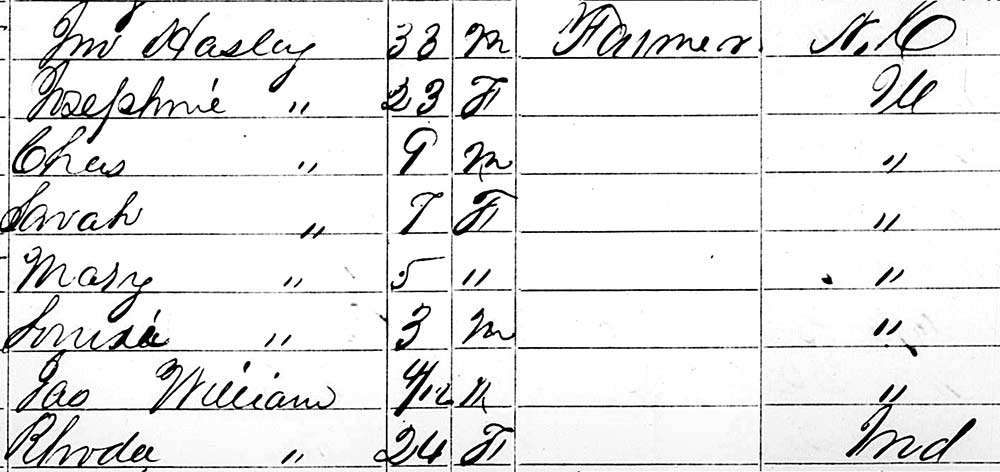 Jno Hasley 33 M Farmer. N.C
Josephine " 23 F Ill
Chas " 9 M "
Sarah " 7 F "
Mary " 5 " "
Louisa " 3 M "
Jas William 4/12 M "
Rhoda " 24 F Ind